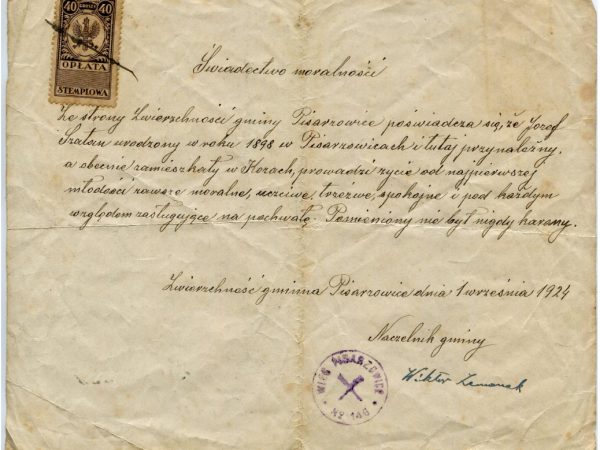 40 GROSZY 40
OPŁATA
STEMPLOWA
Świadectwo moralności
Ze strony Zwierzchności gminy Pisarzowice poświadcza się, że Józef
Szatan urodzony w roku 1898 w Pisarzowicach i tutaj przynależny,
a obecnie zamieszkały w Kozach, prowadzi życie od najpierwszej
młodości zawsze moralne, uczciwe, trzeźwe, spokojne i pod każdym
względem zasługujące na pochwałę. Pomieniony nie był nigdy karany.
Zwierzchność gminna Pisarzowice dnia 1 września 1924
Naczelnik gminy
Wiktor
WIEŚ PISARZOWICE
No 146